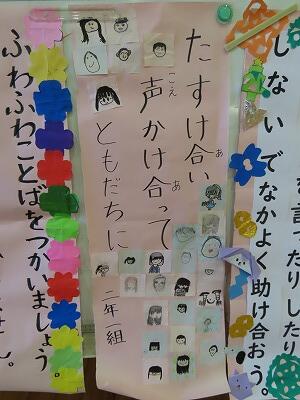 しないでなかよく助け合おう。
を言ったりしたり
たすけ合い
あ
声かけ合って
こえ
あ
ともだちに
二年一組
ふわふわことばをつかいましょう。